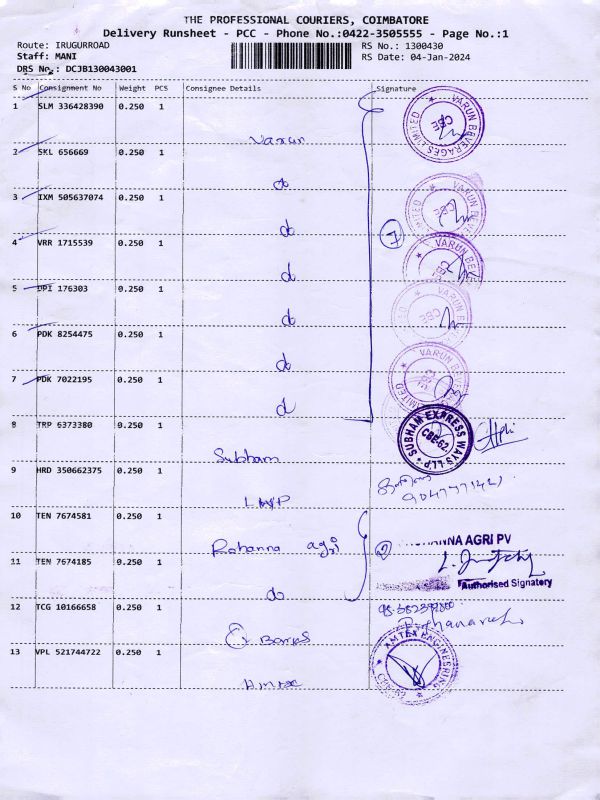 THE PROFESSIONAL COURIERS, COIMBATORE
Delivery Runsheet - PCC - Phone No.:0422-3505555 - Page No.:1
Route: IRUGURROAD
RS No.: 1300430
Staff: MANI
RS Date: 04-Jan-2024
DRS No.: DCJB130043001
S No Consignment No Weight PCS Consignee Details Signature
1 SLM 336428390 0.250 1 Varun
VARUN BEVERAGES LIMITED CBE
2 SKL 656669 0.250 1 do
3 IXM 505637074 0.250 1 do
VARUN BE LIMITED CBE
4 VRR 1715539 0.250 1 do
7
VARUN BEVE
5 DPI 176303 0.250 1 do
CBE
6 PDK 8254475 0.250 1 do
VARUN BE LIMITED
7 PDK 7022195 0.250 1 do
8 TRP 6373380 0.250 1 Subham
SUBHAM EXPRESS WAYS LLP CBE-62.
9 HRD 350662375 0.250 1
10 TEN 7674581 0.250 1 Rohanna agri
2
HANNA AGRI PV
11 TEN 7674185 0.250 1 do
Authorised Signatory
12 TCG 10166658 0.250 1
13 VPL 521744722 0.250 1 Amtex
AMTEX ENGINEERING